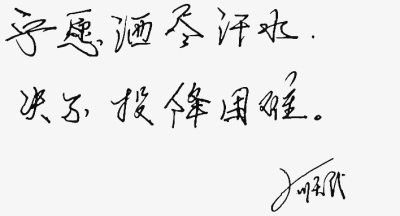 宁愿洒尽汗水.
决不投降困难。